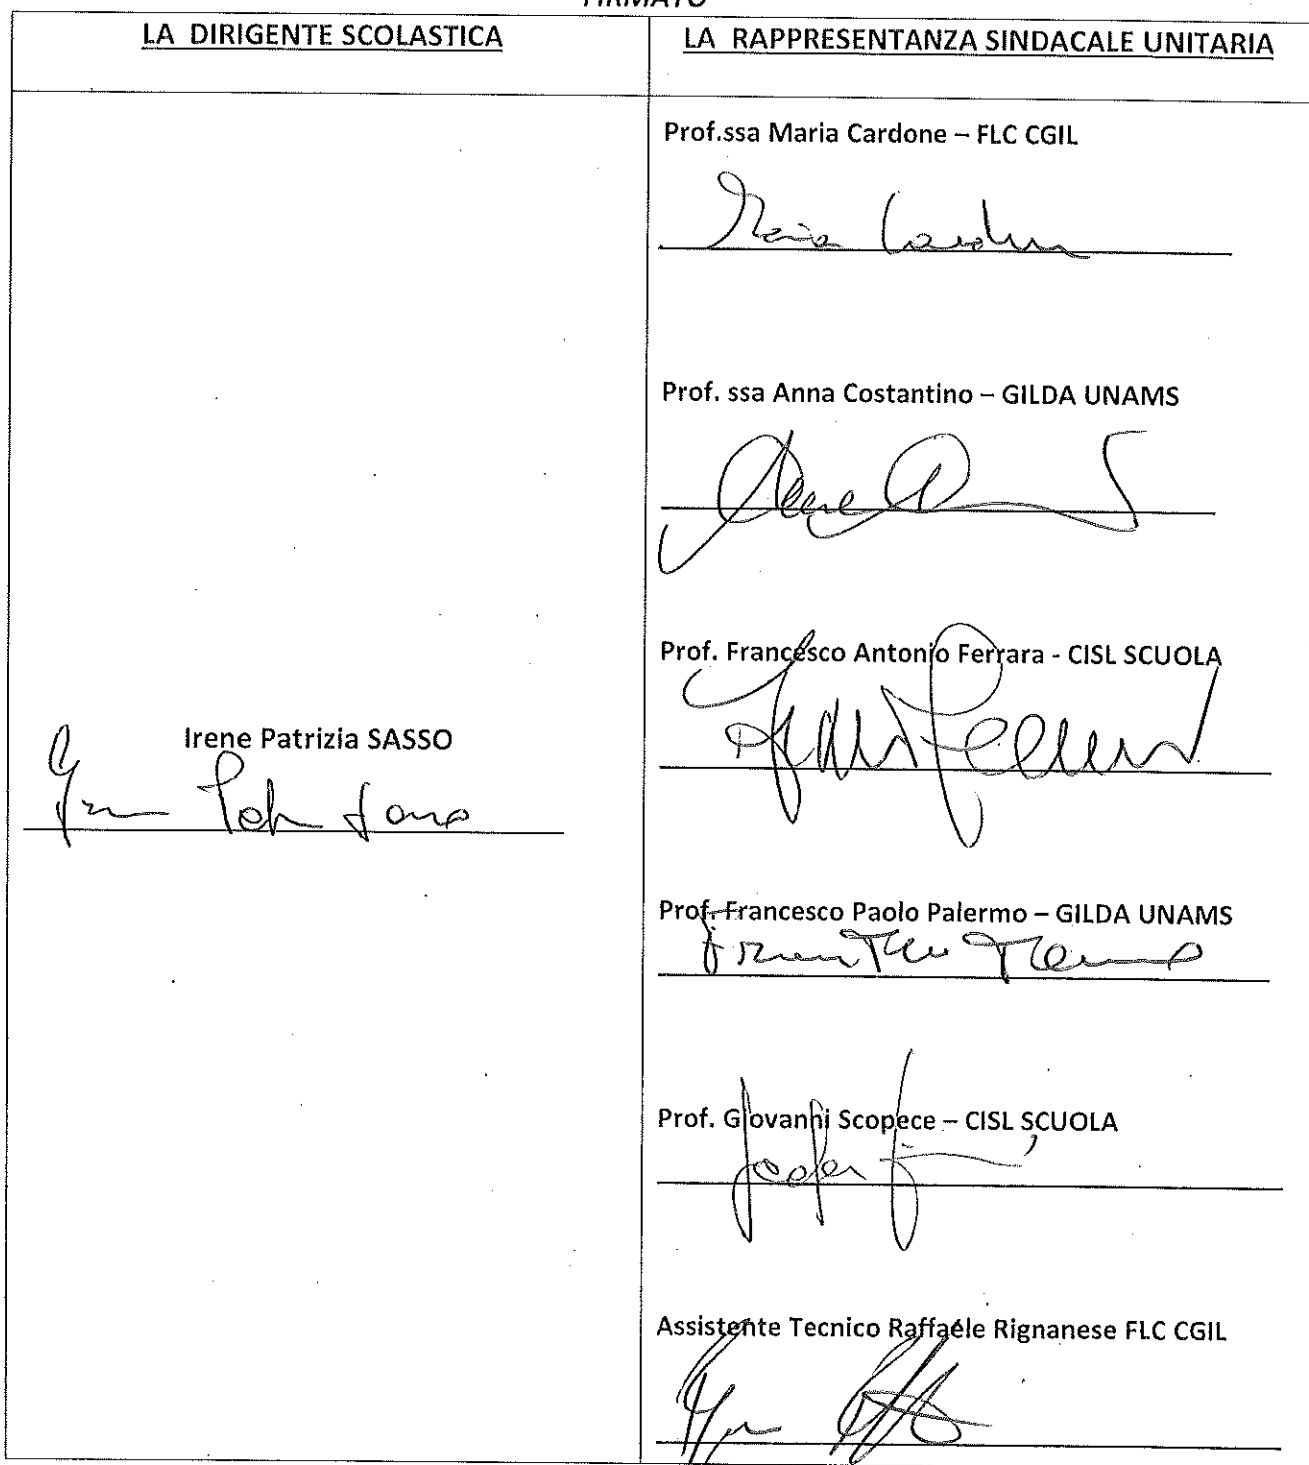 FIRMATO
LA DIRIGENTE SCOLASTICA
LA RAPPRESENTANZA SINDACALE UNITARIA
Prof.ssa Maria Cardone – FLC CGIL
Maria Cardone
Prof. ssa Anna Costantino – GILDA UNAMS
Prof. Francesco Antonio Ferrara - CISL SCUOLA
Irene Patrizia SASSO
Prof. Francesco Paolo Palermo – GILDA UNAMS
Prof. Giovanni Scopece – CISL SCUOLA
Assistente Tecnico Raffaele Rignanese FLC CGIL